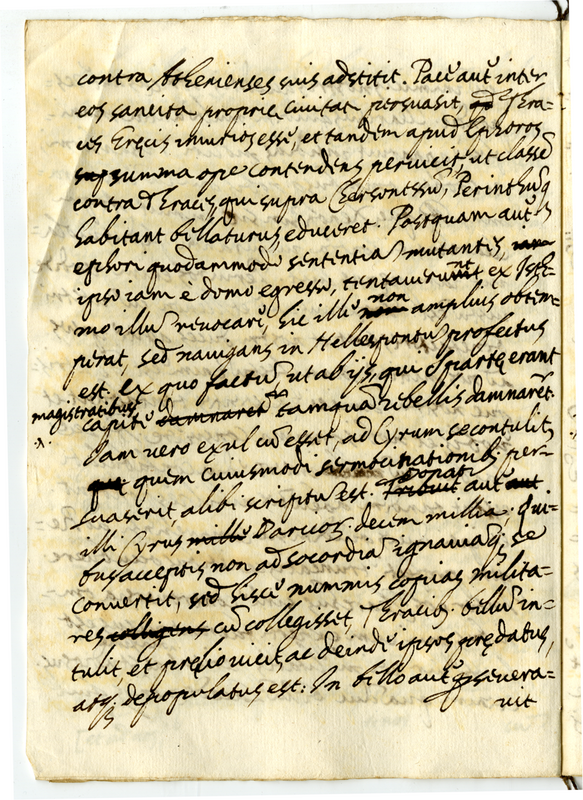 contra Athenienses suis adstitit. Pacē aut̄ inter
eos sancita propriē civitat persuasit, ad Thra-
ces Grȩcis iniurios esse, et tandem apud Ephoros
sup summa ope contendens pervicit, ut classē
contra Thraces, qui supra Chersonessū, Perinthūq
habitant bellaturus educeret. Postquam aut̄
ephori quodammodo sententiā mutantes, iam
ipso iam è domo egresso, tentaverunt ex Isth-
mo illū revocare, hic illi non non amplius obtem-
perat, sed navigans in Hellespontū profectus
est. Ex quo factū ut ab ijs, qui Spartȩ erant
magistratibus
capite damnaret tamquā rebellis damnaret.
Iam vero exul cū esset, ad Cyrum se contulit
que quem cuiusmodi sermocinationib. per-
suaserit, alibi scriptū est. Tribuit Donat aut̄ aut
illi Cyrus mille Daricos decem millia, qui-
bus acceptis non ad socordiā ignaviāq se
convertit, sed hisce nummis copias milita-
res colligens cū collegisset, Thracib. bellū in-
tulit, et prȩlio vicit, ac deinde ipsos prȩdatus,
atq depopulatus est: In bello aut̄ persevera-
vit